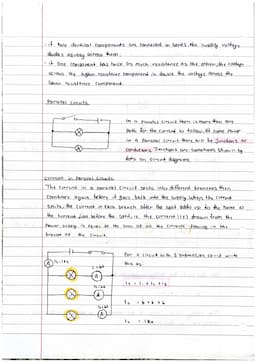 · if two identical components are connected in series the supply voltage
divides equally across them.
· if one component has twice as much resistance as the other, the voltage
across the higher resistance component is double the voltage across the
lower resistance component.
Parallel circuits
In a parallel circuit there is more than one
path for the current to follow. At some point
in a parallel circuit there must be junctions or
conductors. Junctions are sometimes shown by
dots on circuit diagrams.
Current in Parallel Circuits
The current in a parallel circuit splits into different branches then
combines again before it goes back into the supply. When the current
splits, the current in each branch after the split adds up to the same as
the current just before the split, ie. the current drawn from the
power supply is equal to the sum of all the currents flowing in the
branches of the circuit.
For a circuit with 3
A
A
A
A